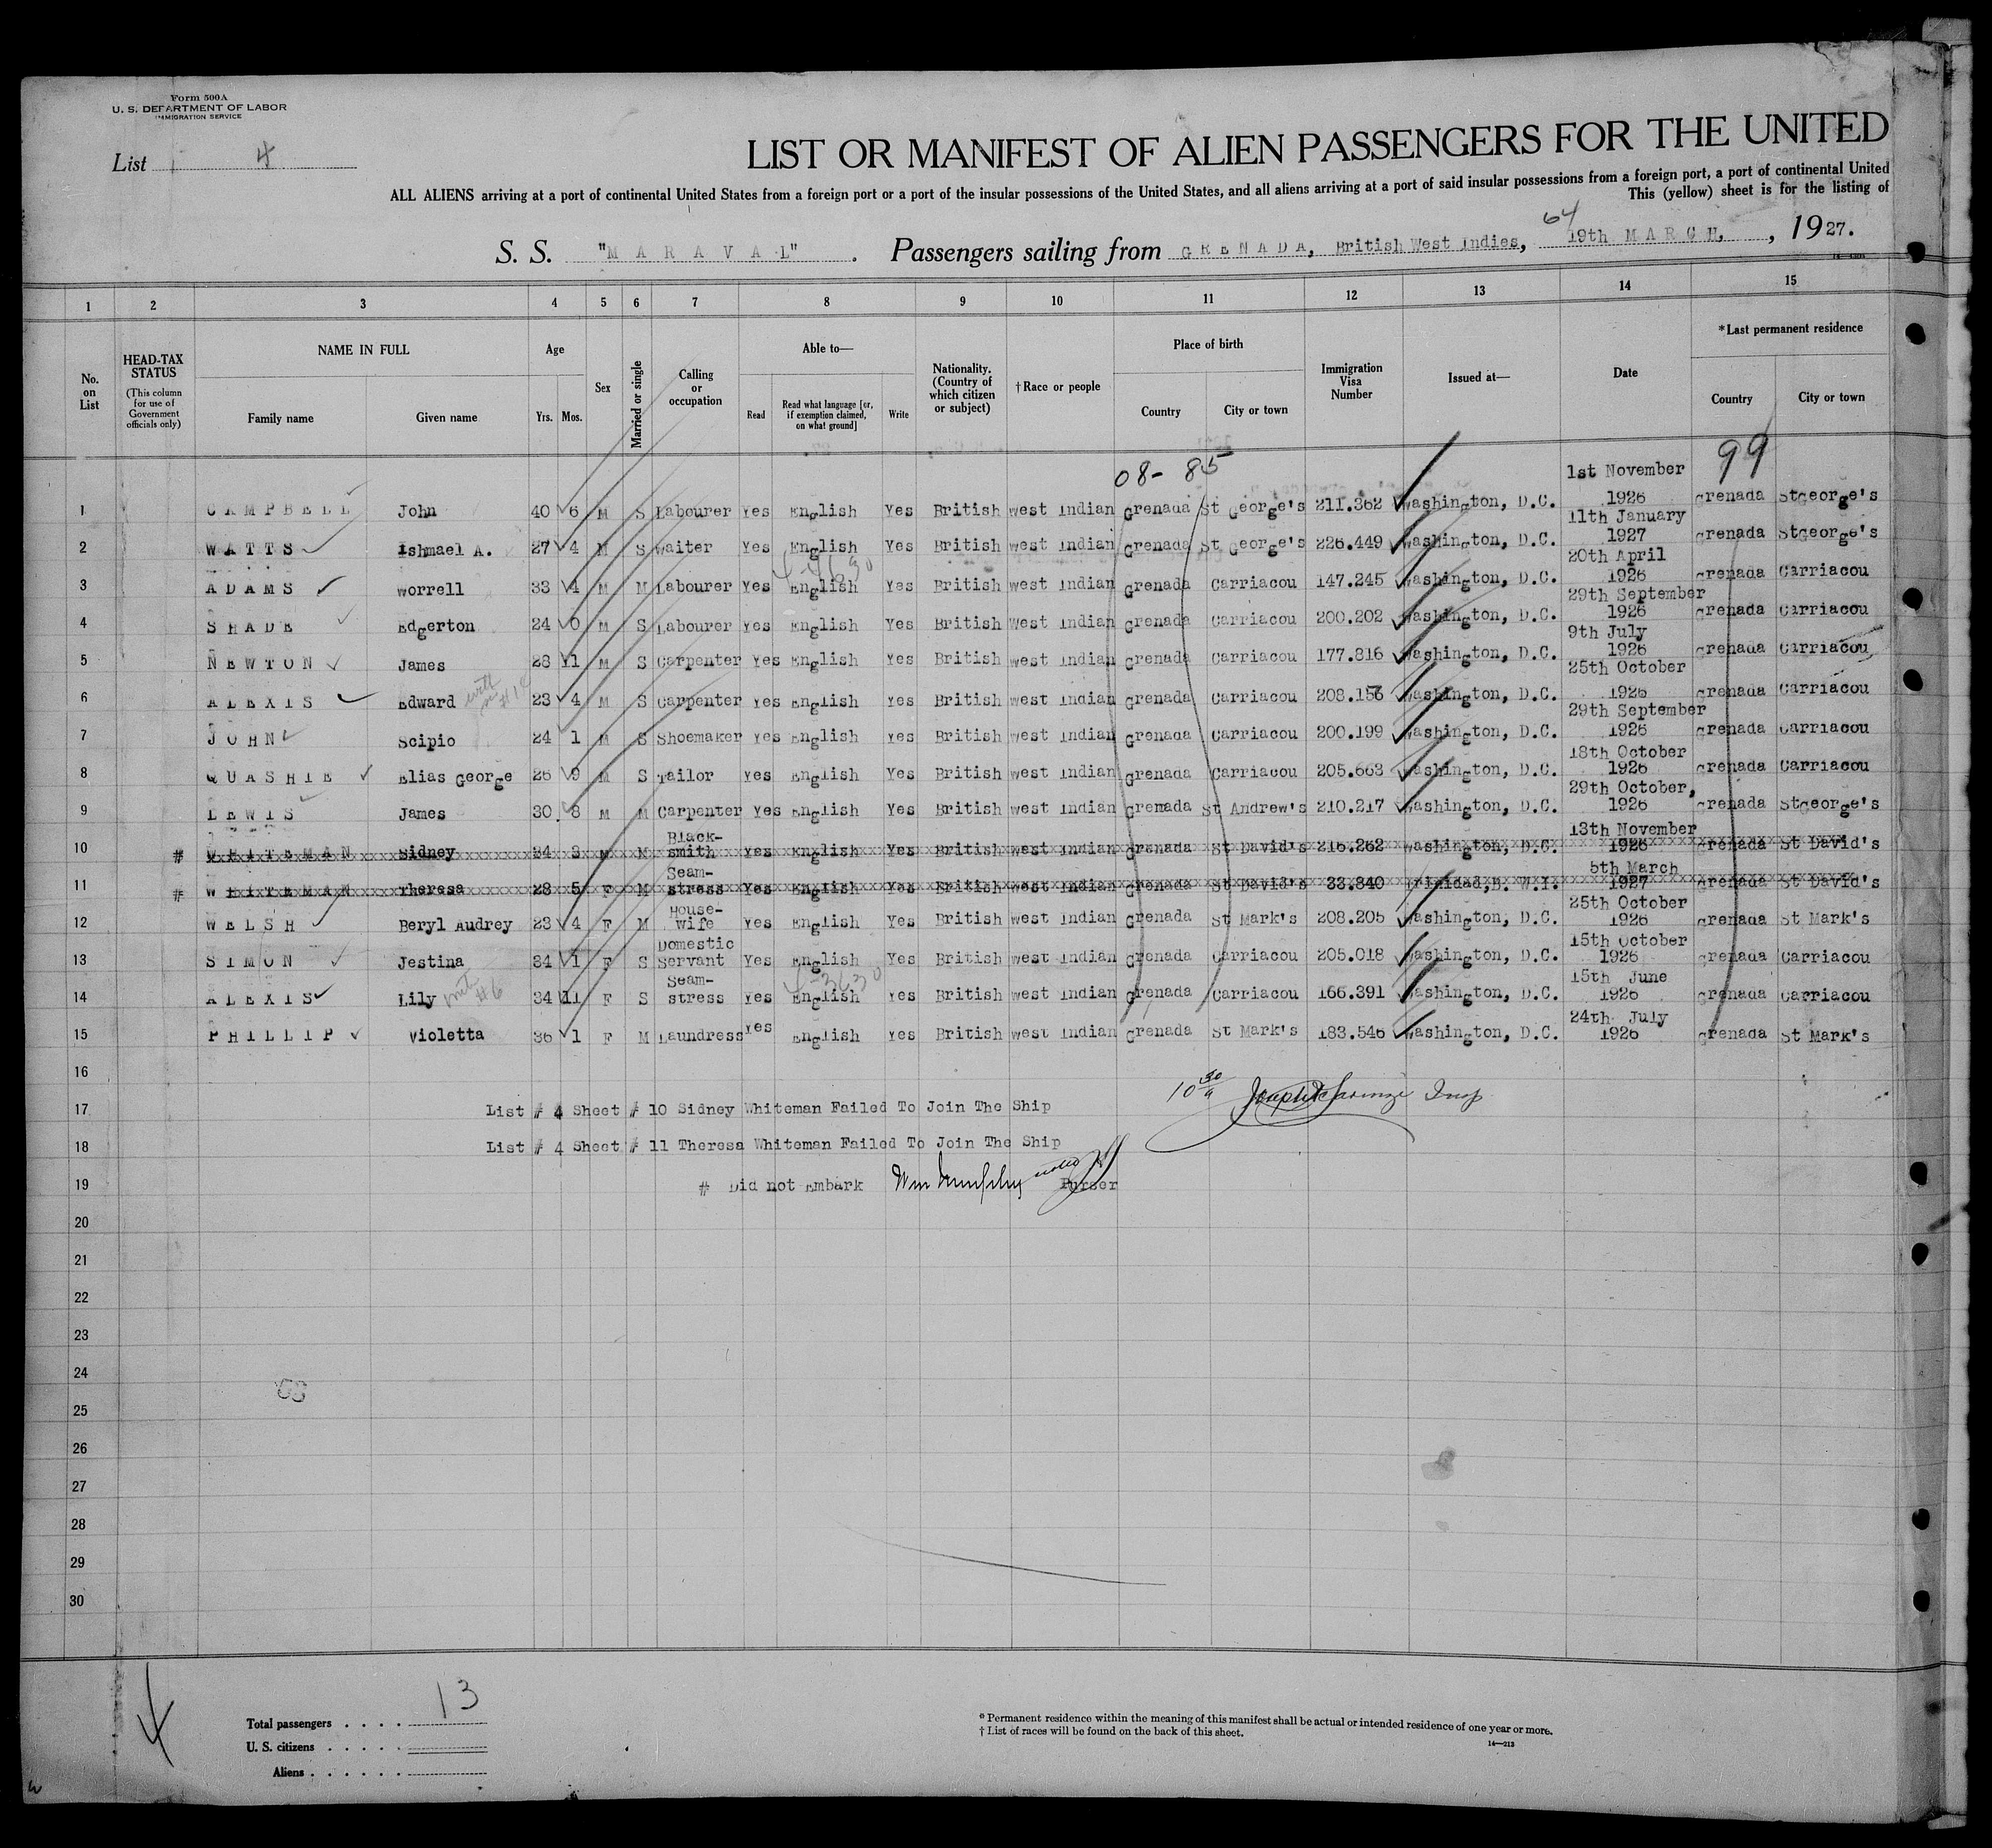 Form 500A
U. S. DEPARTMENT OF LABOR
IMMIGRATION SERVICE
List 4
LIST OR MANIFEST OF ALIEN PASSENGERS FOR THE UNITED
ALL ALIENS arriving at a port of continental United States from a foreign port or a port of the insular possessions of the United States, and all aliens arriving at a port of said insular possessions from a foreign port, a port of continental United
This (yellow) sheet is for the listing of
64
S. S. "M A R A V A L". Passengers sailing from G R E N A D A, British West Indies, 19th M A R C H, , 1927.
1 2 3 4 5 6 7 8 9 10 11 12 13 14 15
No. on List
HEAD-TAX STATUS
(This column for use of Government officials only)
NAME IN FULL
Family name Given name
Age
Yrs. Mos.
Sex
Married or single
Calling or occupation
Able to—
Read Read what language [or, if exemption claimed, on what ground] Write
Nationality. (Country of which citizen or subject)
†Race or people
Place of birth
Country City or town
Immigration Visa Number
Issued at—
Date
*Last permanent residence
Country City or town
08- 85 99
1 C A M P B E L L John 40 6 M S Labourer Yes English Yes British West Indian Grenada St George's 211.362 Washington, D.C. 1st November 1926 Grenada StGeorge's
2 W A T T S Ishmael A. 27 4 M S Waiter Yes English Yes British West Indian Grenada St George's 226.449 Washington, D.C. 11th January 1927 Grenada StGeorge's
3 A D A M S Worrell 33 4 M M Labourer Yes English Yes British West Indian Grenada Carriacou 147.245 Washington, D.C. 20th April 1926 Grenada Carriacou
4 S H A D E Edgerton 24 0 M S Labourer Yes English Yes British West Indian Grenada Carriacou 200.202 Washington, D.C. 29th September 1926 Grenada Carriacou
5 N E W T O N James 28 11 M S Carpenter Yes English Yes British West Indian Grenada Carriacou 177.816 Washington, D.C. 9th July 1926 Grenada Carriacou
6 A L E X I S Edward 23 4 M S Carpenter Yes English Yes British West Indian Grenada Carriacou 208.156 Washington, D.C. 25th October 1926 Grenada Carriacou
7 J O H N Scipio 24 1 M S Shoemaker Yes English Yes British West Indian Grenada Carriacou 200.199 Washington, D.C. 29th September 1926 Grenada Carriacou
8 Q U A S H I E Elias George 26 9 M S Tailor Yes English Yes British West Indian Grenada Carriacou 205.663 Washington, D.C. 18th October 1926 Grenada Carriacou
9 L E W I S James 30 8 M M Carpenter Yes English Yes British West Indian Grenada St Andrew's 210.217 Washington, D.C. 29th October, 1926 Grenada StGeorge's
10 # W H I T E M A N Sidney 34 3 M M Black-smith Yes English Yes British West Indian Grenada St David's 216.262 Washington, D.C. 13th November 1926 Grenada St David's
11 # W H I T E M A N Theresa 28 5 F M Seam-stress Yes English Yes British West Indian Grenada St David's 33.840 Trinidad, B. W.I. 5th March 1927 Grenada St David's
12 W E L S H Beryl Audrey 23 4 F M House-wife Yes English Yes British West Indian Grenada St Mark's 208.205 Washington, D.C. 25th October 1926 Grenada St Mark's
13 S I M O N Jestina 34 1 F S Domestic Servant Yes English Yes British West Indian Grenada Carriacou 205.018 Washington, D.C. 15th October 1926 Grenada Carriacou
14 A L E X I S Lily 34 11 F S Seam-stress Yes English Yes British West Indian Grenada Carriacou 166.391 Washington, D.C. 15th June 1926 Grenada Carriacou
15 P H I L L I P Violetta 36 1 F M Laundress Yes English Yes British West Indian Grenada St Mark's 183.546 Washington, D.C. 24th July 1926 Grenada St Mark's
16
17 List # 4 Sheet # 10 Sidney Whiteman Failed To Join The Ship
18 List # 4 Sheet # 11 Theresa Whiteman Failed To Join The Ship
19 # Did not Embark Purser
20
21
22
23
24
25
26
27
28
29
30
4
13
Total passengers . . . .
U. S. citizens . . . . .
Aliens . . . . . .
* Permanent residence within the meaning of this manifest shall be actual or intended residence of one year or more.
† List of races will be found on the back of this sheet.
14—213